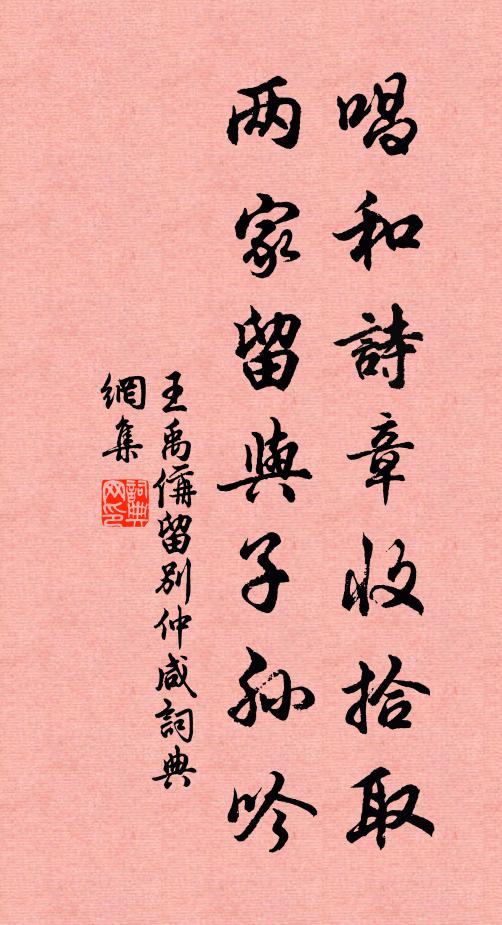 唱和詩章收拾取
两家留與子孙吟
王禹偁留别仲咸詞典
網集
詞典
网印